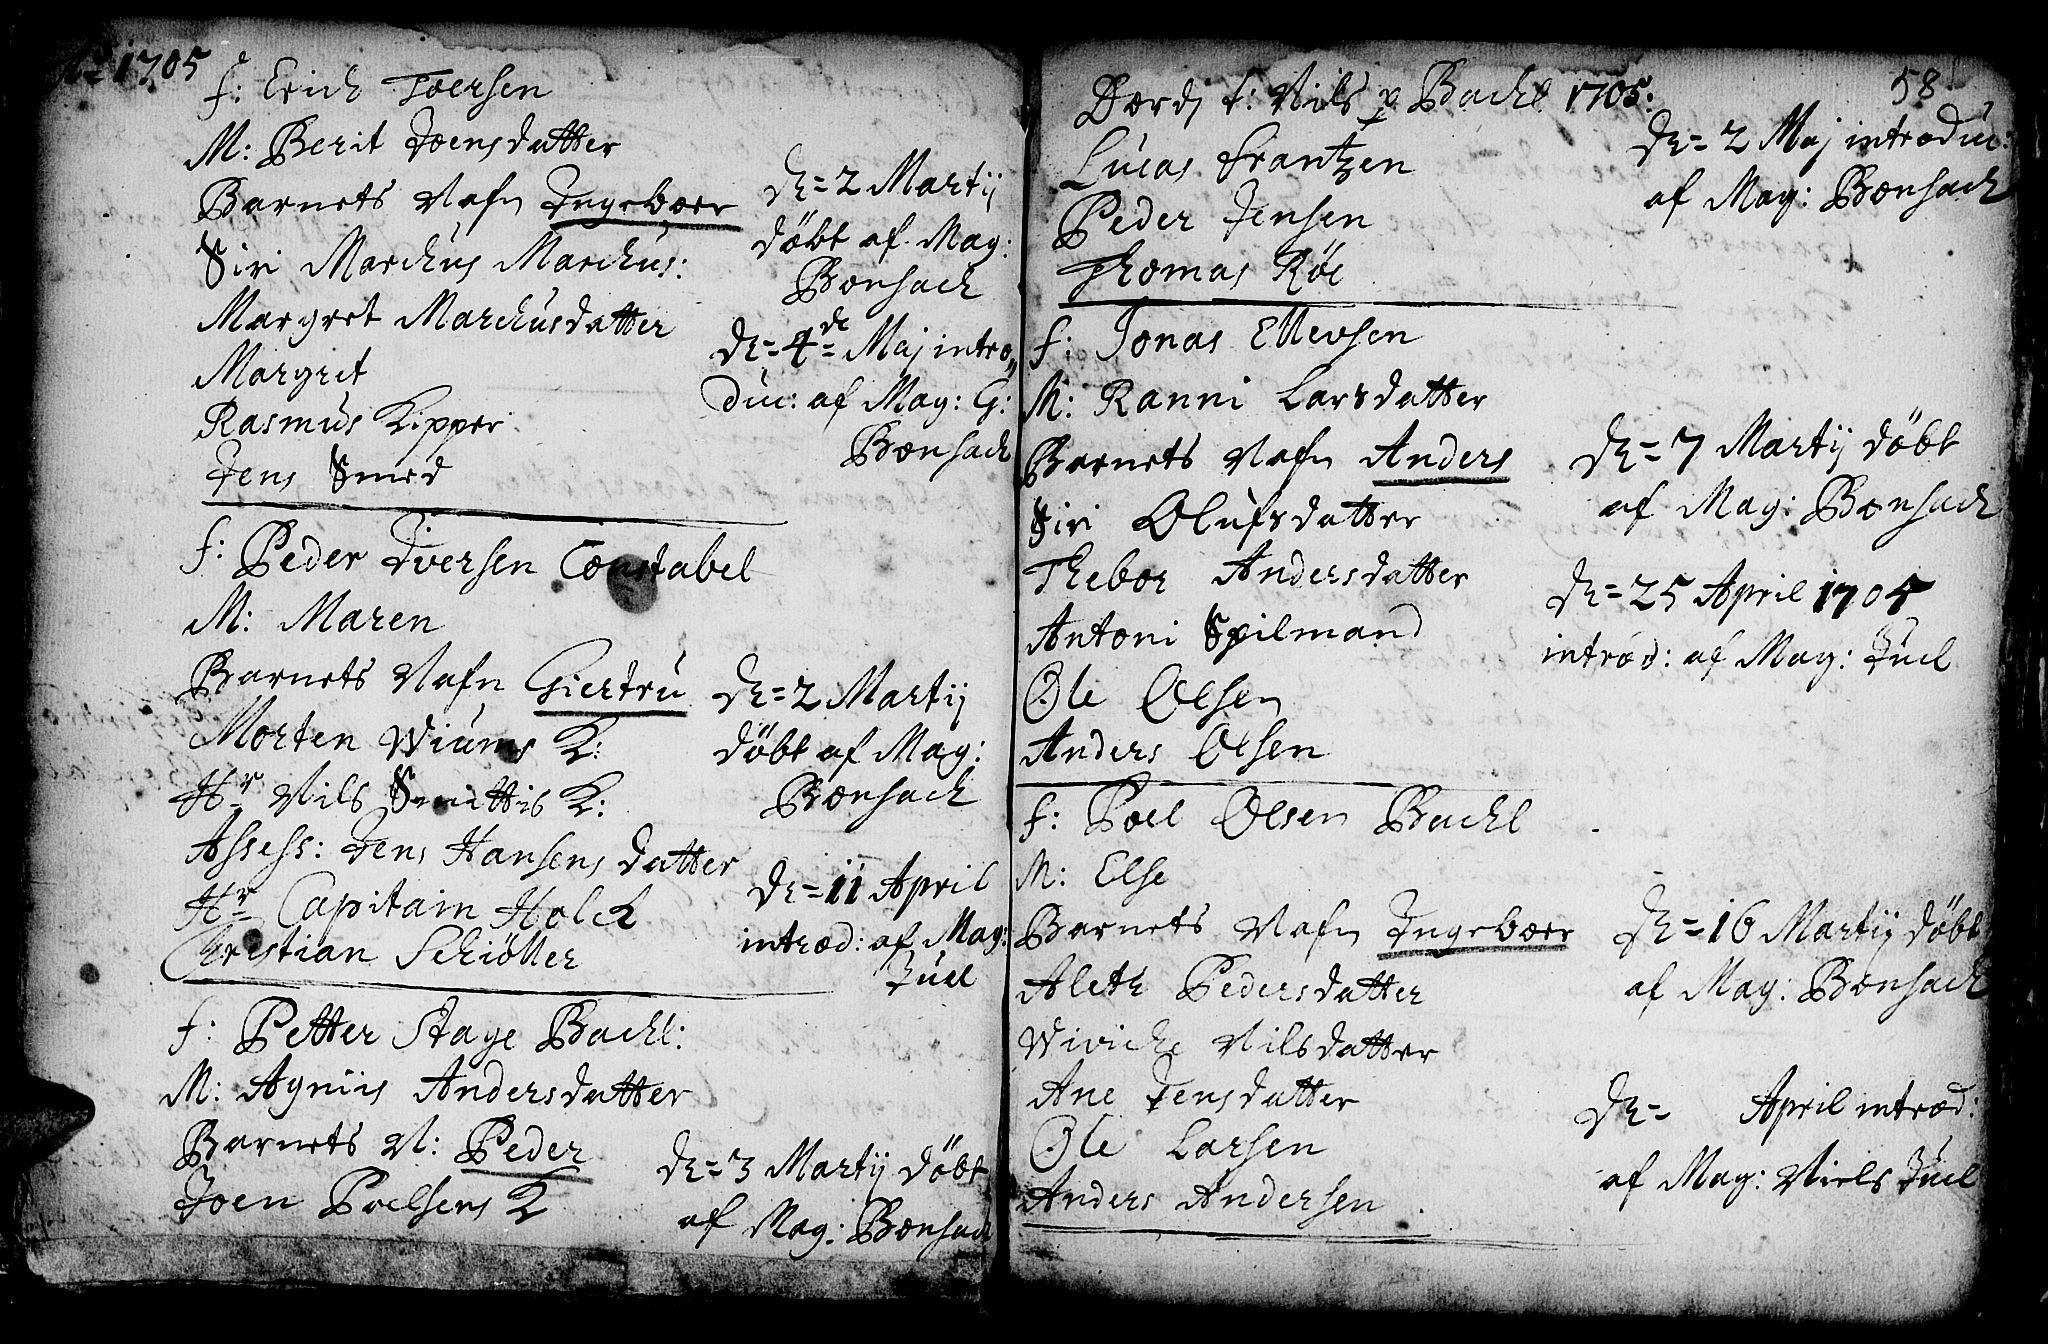 Aō 1705
f: Erich Toersen
M: Berit Joensdatter
Barnets Nafn Ingeboer
Siri Marchus Marchus:
Margret Marchusdatter
Margrit
Rasmus Kipper
Jens Smed
D= 2 Martij
døbt af Mag:
Bonsach
D= 4de Maj intro
duc: af Mag: G:
Bonsach
f: Peder Iversen Constabel
M: Maren
Barnets Nafn Giertru
Morten Wiums K:
Hr Nils Smittis K:
Assess: Jens Hansens datter
Hr Capitain Holck
Christian Schiøller
D= 2 Martij
døbt af Mag:
Bonsach
D= 11 April
introd: af Mag:
Juel
f: Petter Stage Bachl:
M: Agniis Andersdatter
Barnets N: Peder
Joen Poelsens K
D= 3 Martij døbt
af Mag: Bonsach
58
Dordj f: Nils p Bachl 1705:
Lucas Frantzen
Peder Jensen
Thomas Røe
D= 2 Maj introduc:
af Mag: Bonsach
f: Jonas Ellevsen
M: Ranni Larsdatter
Barnets Nafn Anders
Siri Olufsdatter
Thebor Andersdatter
Antoni Spilmand
Ole Olsen
Anders Olsen
D= 7 Martij døbt
af Mag: Bonsach
D= 25 April 1705
introd: af Mag: Juel
f: Poel Olsen Bachl
M: Else
Barnets Nafn Ingeboer
Aleth Pedersdatter
Wiviche Nilsdatter
Ane Jensdatter
Ole Larsen
Anders Andersen
D= 16 Martij døbt
af Mag: Bonsach
D= April introd:
af Mag: Niels Juel